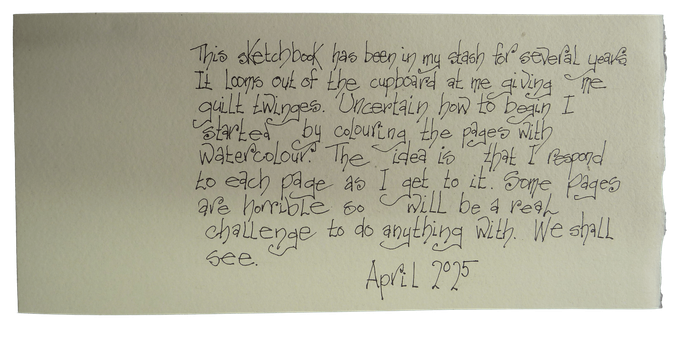 This sketchbook has been in my stash for several years
It looms out of the cupboard at me giving me
guilt twinges. Uncertain how to begin I
started by colouring the pages with
watercolour. The idea is that I respond
to each page as I get to it. Some pages
are horrible so will be a real
challenge to do anything with. We shall
see.
April 2025